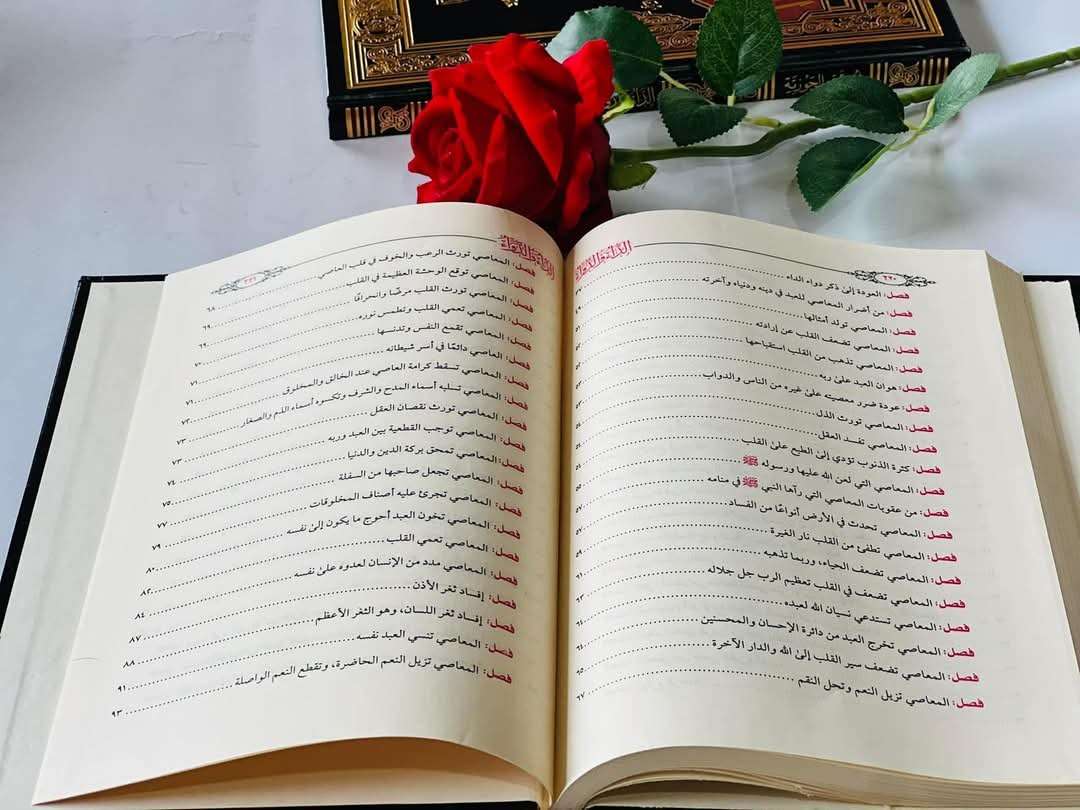 الجوزية
الداء والدواء
٢٢٠
فصل: العودة إلىٰ ذكر دواء الداء
فصل: من أضرار المعاصي للعبد في دينه ودنياه وآخرته
فصل: المعاصي تولد أمثالها
فصل: المعاصي تضعف القلب عن إرادته
فصل: المعاصي تذهب من القلب استقباحها
فصل: هوان العبد علىٰ ربه
فصل: عودة ضرر معصيته علىٰ غيره من الناس والدواب
فصل: المعاصي تورث الذل
فصل: المعاصي تفسد العقل
فصل: كثرة الذنوب تؤدي إلىٰ الطبع علىٰ القلب
فصل: المعاصي التي لعن الله عليها ورسوله ﷺ
فصل: من عقوبات المعاصي التي رآها النبي ﷺ في منامه
فصل: المعاصي تحدث في الأرض أنواعًا من الفساد
فصل: المعاصي تطفئ من القلب نار الغيرة
فصل: المعاصي تضعف الحياء، وربما تذهبه
فصل: المعاصي تضعف في القلب تعظيم الرب جل جلاله
فصل: المعاصي تستدعي نسيان الله لعبده
فصل: المعاصي تخرج العبد من دائرة الإحسان والمحسنين
فصل: المعاصي تضعف سير القلب إلىٰ الله والدار الآخرة
فصل: المعاصي تزيل النعم وتحل النقم ٦٧
الداء والدواء
٢٢١
فصل: المعاصي تورث الرعب والخوف في قلب العاصي
فصل: المعاصي توقع الوحشة العظيمة في القلب ٦٨
فصل: المعاصي تورث القلب مرضًا وانحرافًا
فصل: المعاصي تعمي القلب وتطمس نوره ٦٩
فصل: المعاصي تقمع النفس وتدنسها ٧٠
فصل: العاصي دائمًا في أسر شيطانه ٧١
فصل: المعاصي تسقط كرامة العاصي عند الخالق والمخلوق ٧١
فصل: المعاصي تسلبه أسماء المدح والشرف وتكسوه أسماء الذم والصغار ٧٢
فصل: المعاصي تورث نقصان العقل ٧٣
فصل: المعاصي توجب القطعية بين العبد وربه ٧٣
فصل: المعاصي تمحق بركة الدين والدنيا ٧٤
فصل: المعاصي تجعل صاحبها من السفلة ٧٥
فصل: المعاصي تجرئ عليه أصناف المخلوقات ٧٧
فصل: المعاصي تخون العبد أحوج ما يكون إلىٰ نفسه ٧٩
فصل: المعاصي تعمي القلب ٨٠
فصل: المعاصي مدد من الإنسان لعدوه علىٰ نفسه ٨٢
فصل: إفساد ثغر الأذن ٨٤
فصل: إفساد ثغر اللسان، وهو الثغر الأعظم ٨٧
فصل: المعاصي تنسي العبد نفسه ٨٨
فصل: المعاصي تزيل النعم الحاضرة، وتقطع النعم الواصلة ٩١
٩٣